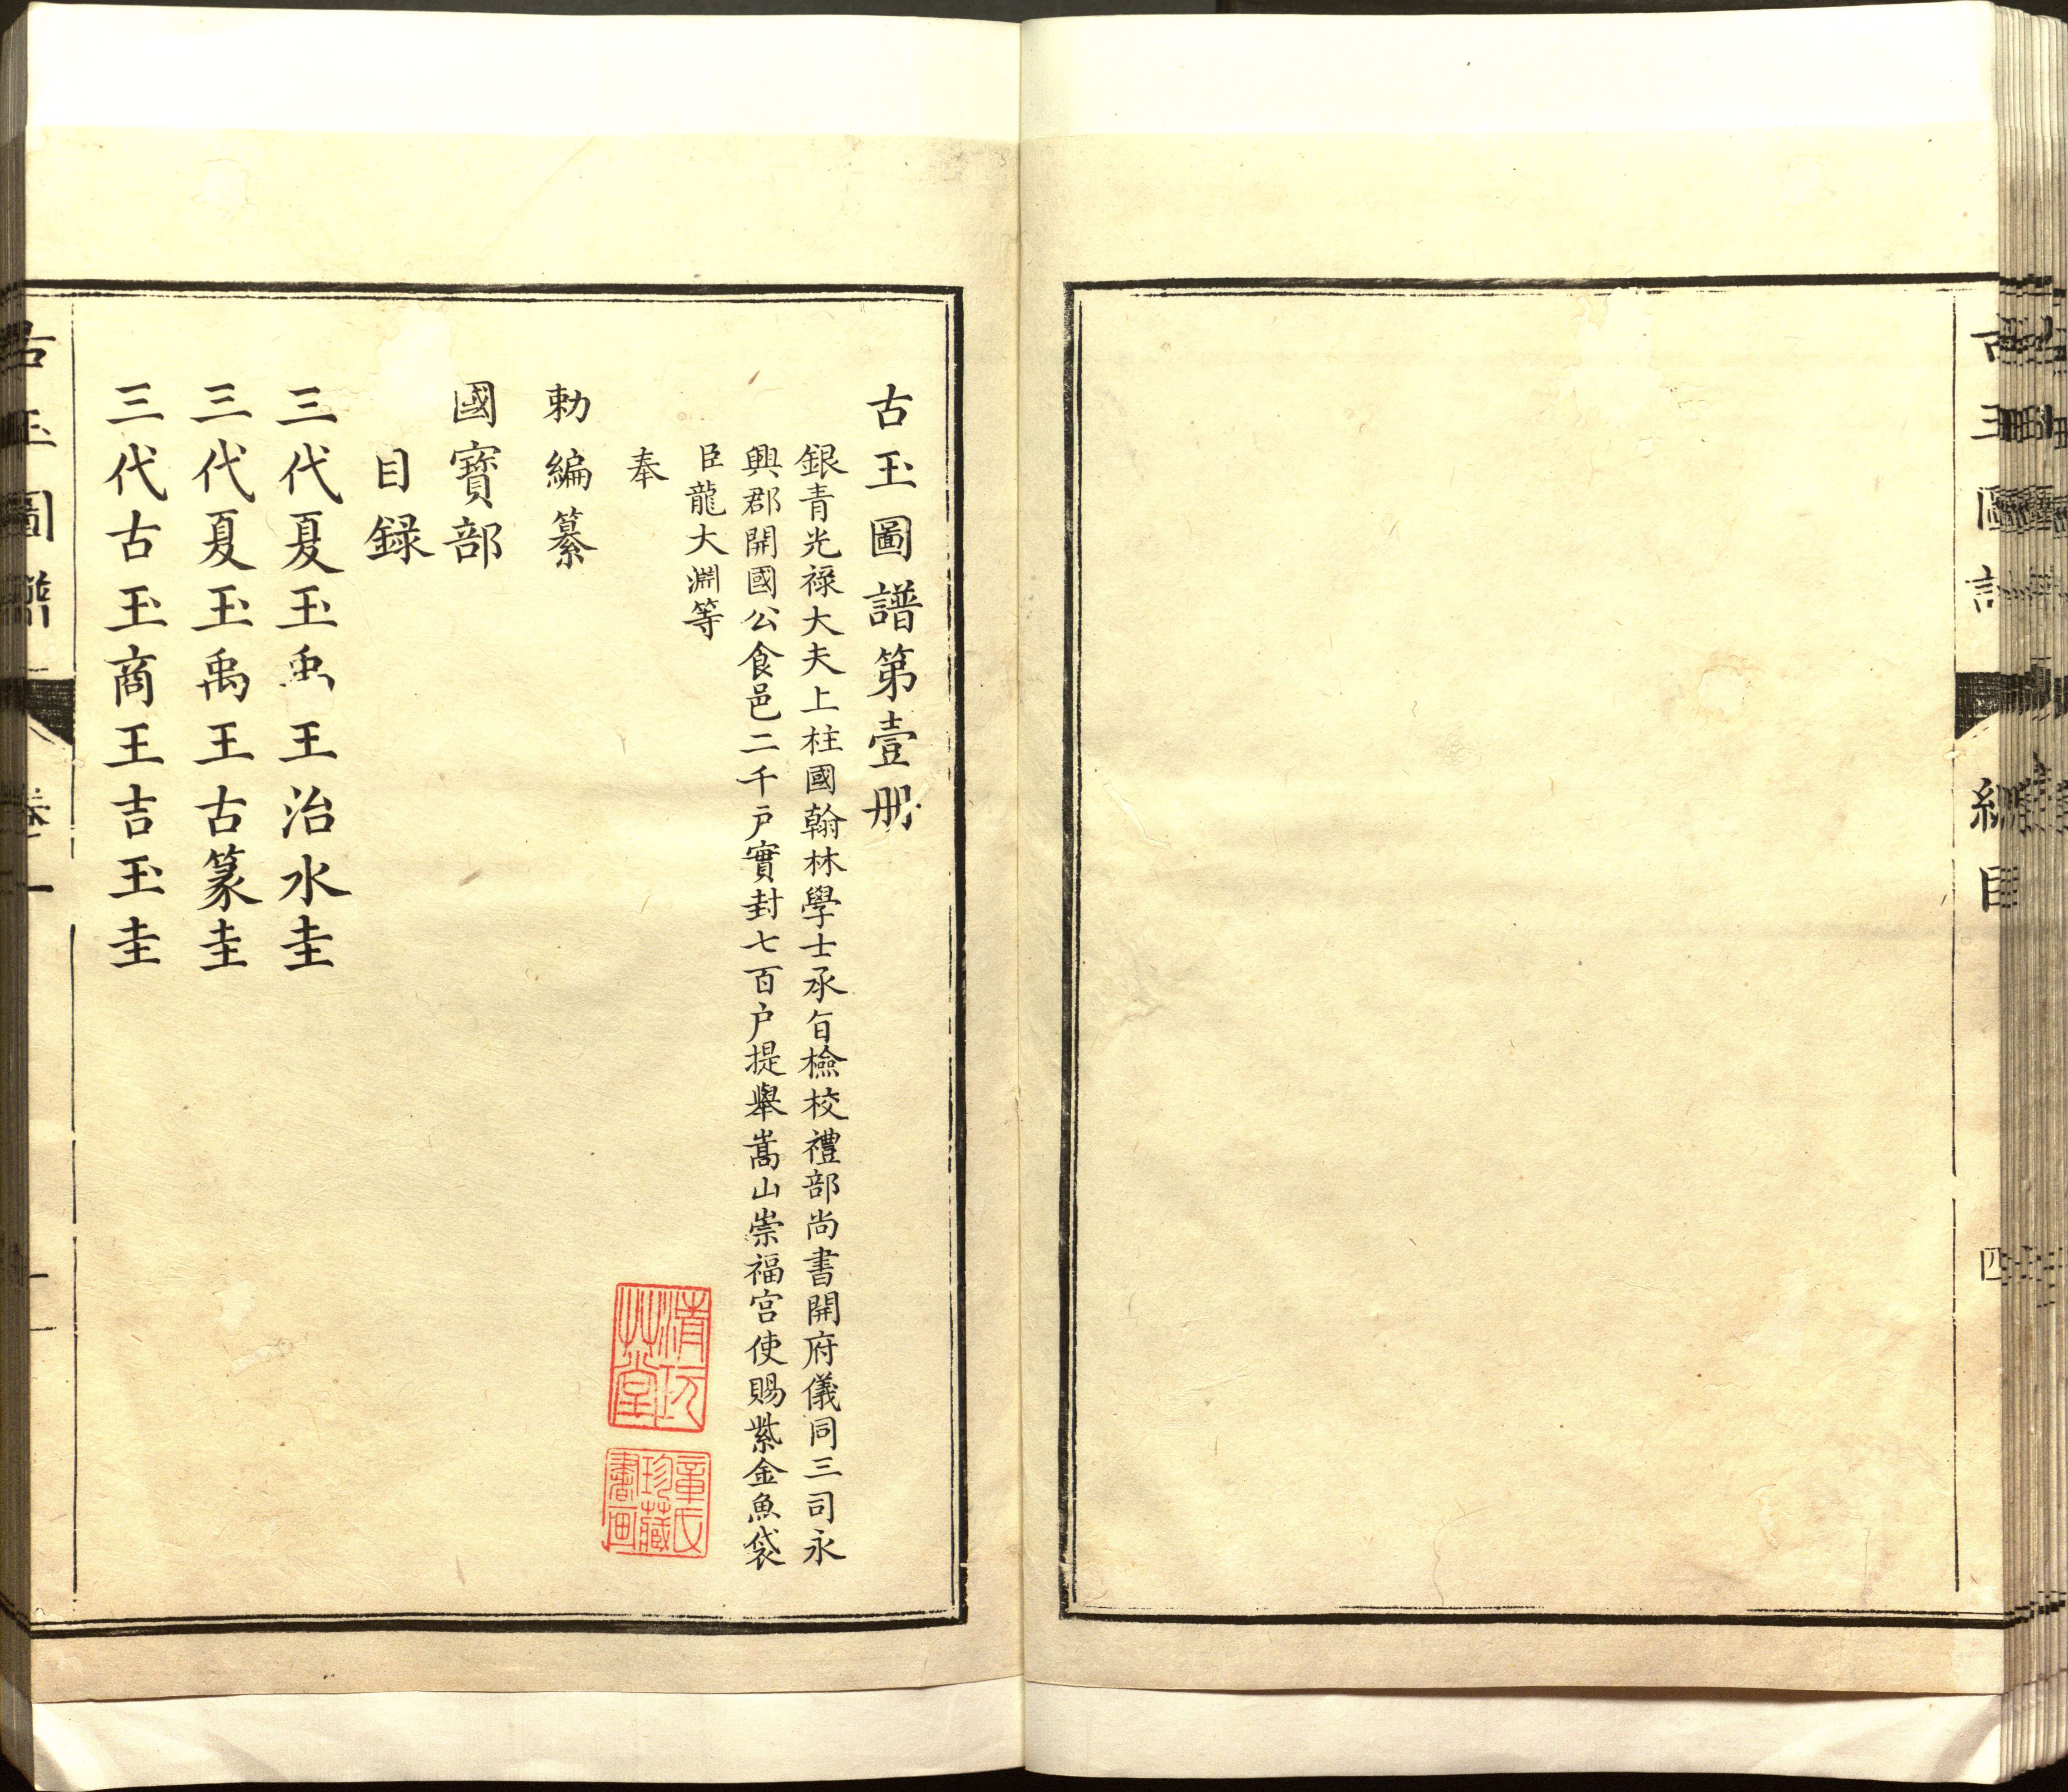 古玉圖譜第壹册
銀青光祿大夫上柱國翰林學士承旨檢校禮部尚書開府儀同三司永
興郡開國公食邑二千戶實封七百戶提舉嵩山崇福宮使賜紫金魚袋
臣龍大淵等
奉
勅編纂
國寶部
目録
三代夏玉禹王治水圭
三代夏玉禹王古篆圭
三代古玉商王吉玉圭
章氏珍藏書画
古玉圖
卷一
四